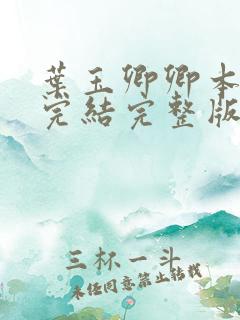 葉玉卿卿本
完結完整版
三杯一斗
未经同意禁止转载